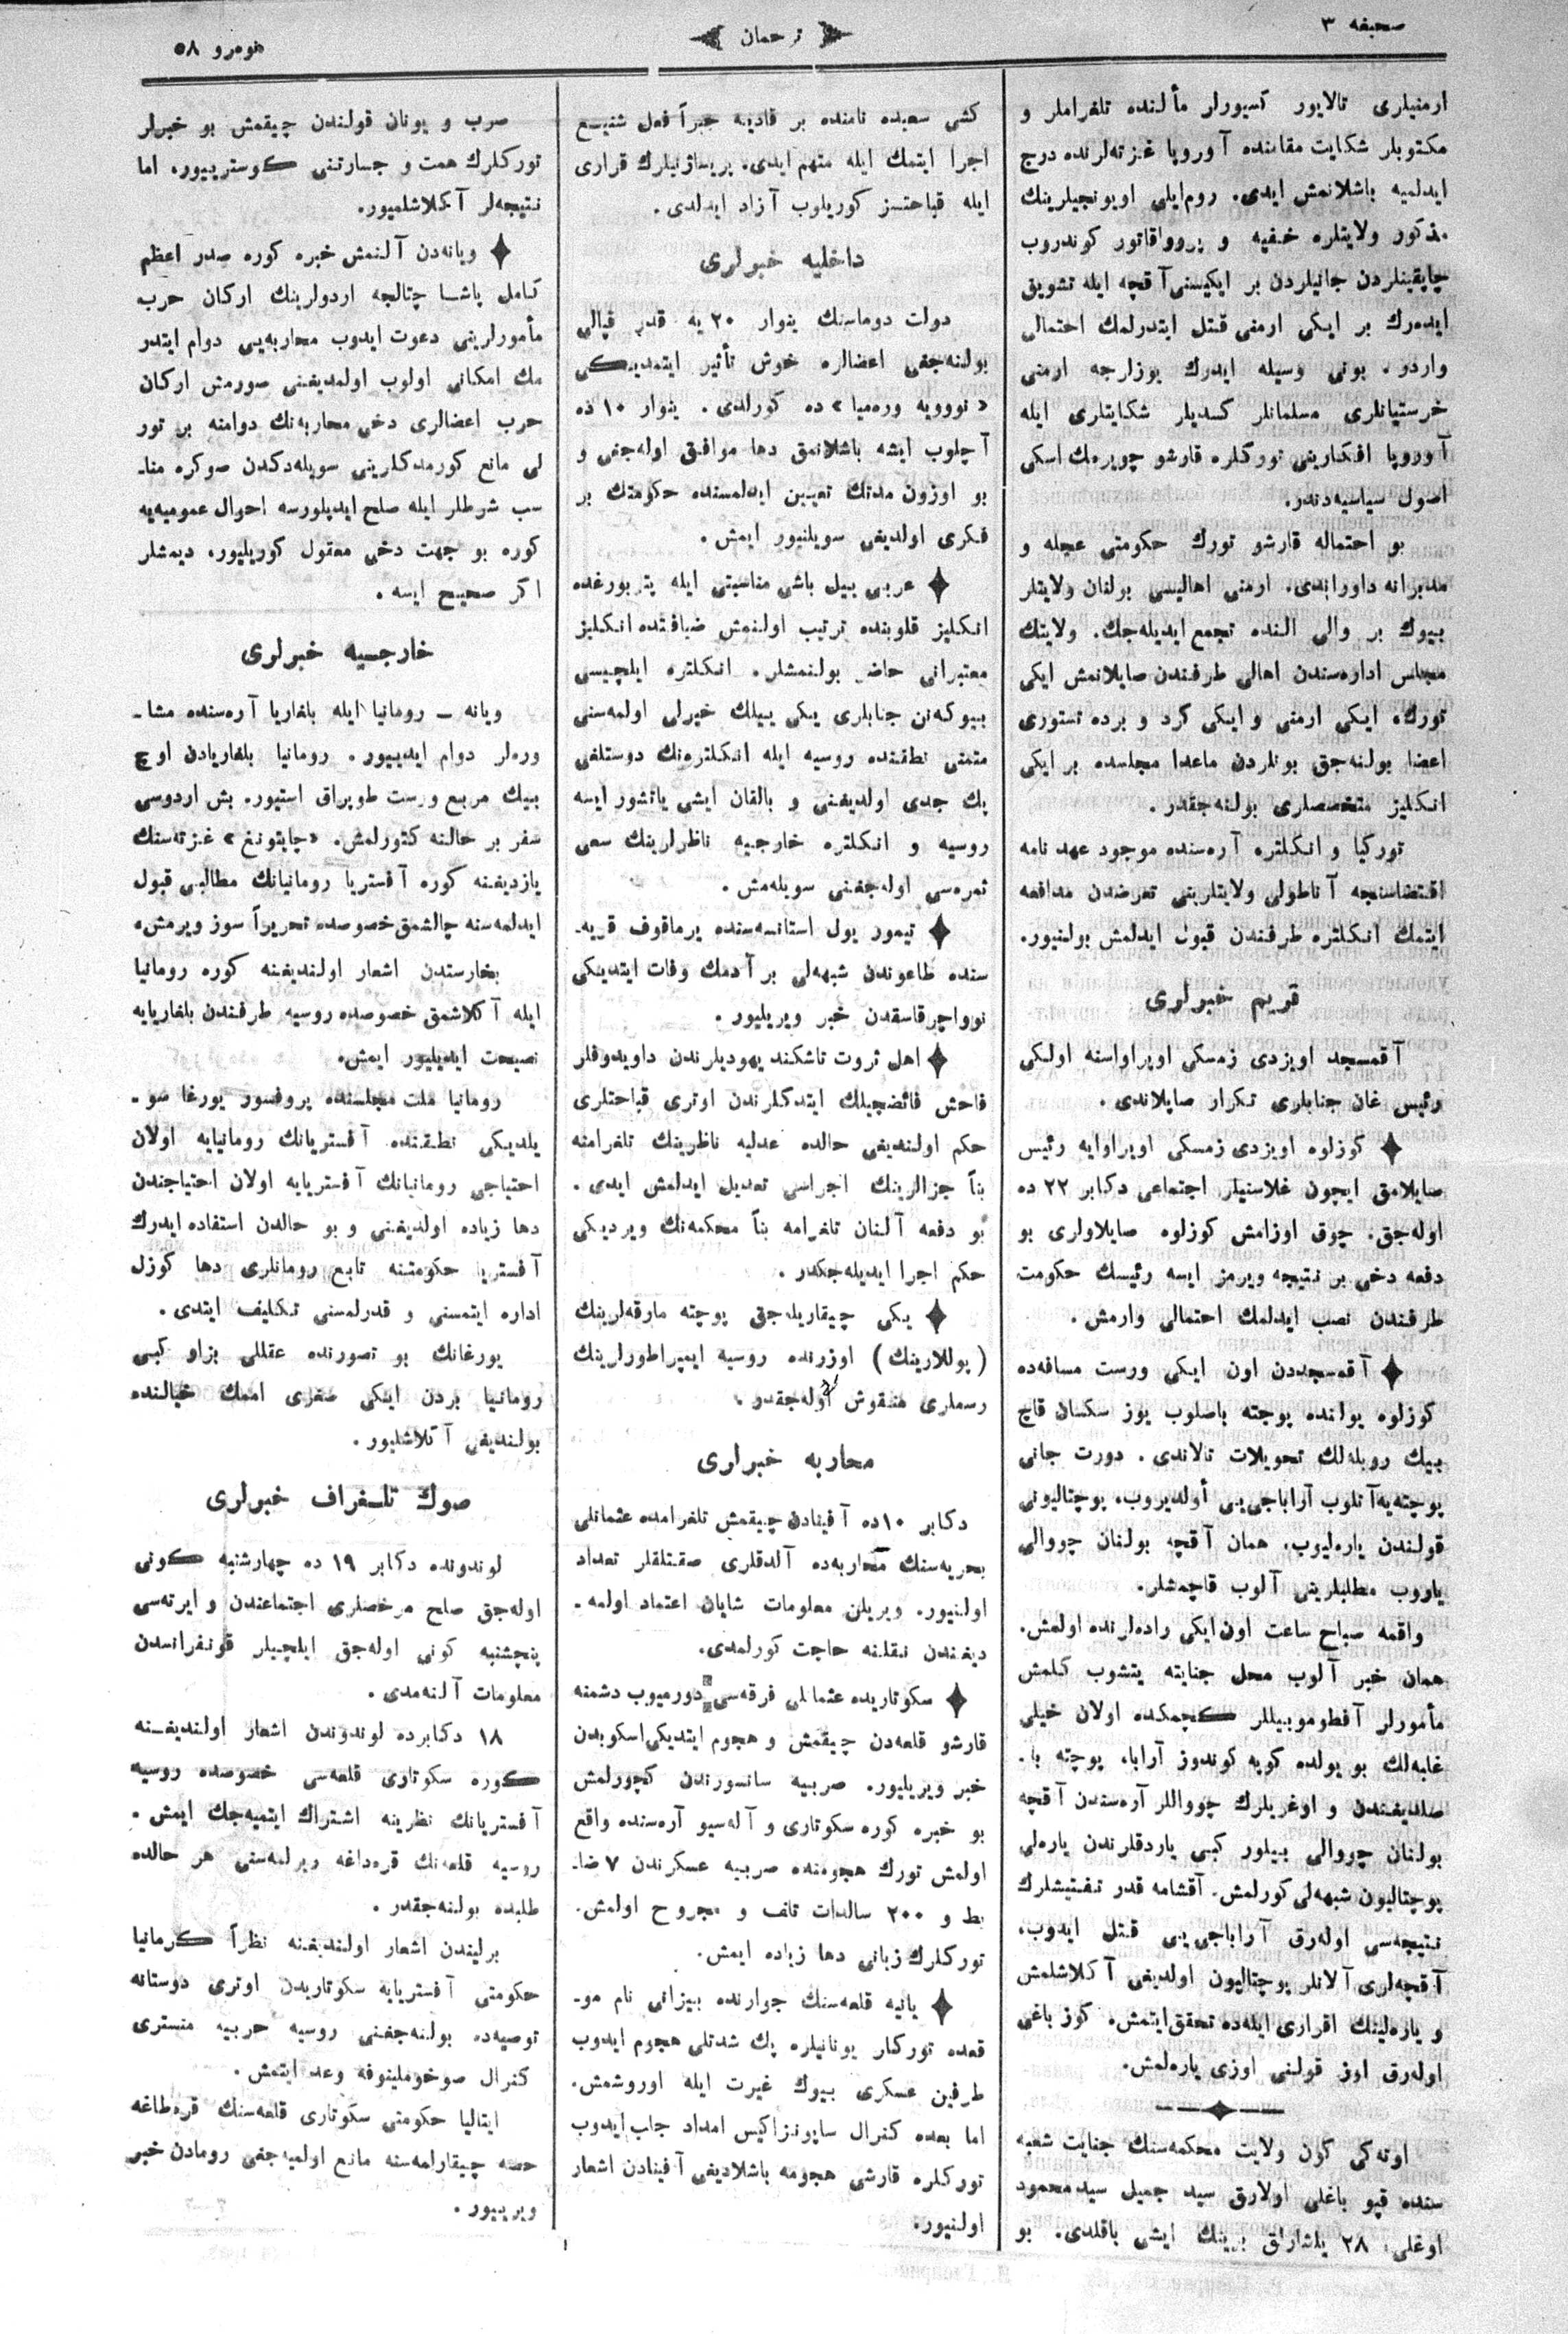 صحیفه ٣
ترجمان
نومرو ٥٨
ارمنیلری تالایور کسیورلر مألنده تلغراملر و
مکتوبلر شکایت مقامنده آوروپا غزته‌لرنده درج
ایدلمیه باشلانمش ایدی. روم‌ایلی اویونجیلرینك
مذکور ولایتلره خفیه و پرووقاتور کوندروب
چاپقینلردن جانیلردن بر ایکیسنی آقچه ایله تشویق
ایده‌رك بر ایکی ارمنی قتل ایتدرلمك احتمالی
واردر. بونی وسیله ایدرك یوزلرجه ارمنی
خرستیانلری مسلمانلر کسدیلر شکایتلری ایله
آوروپا افکارینی تورکلره قارشو چویرمك اسکی
اصول سیاسیه‌دندر.
بو احتماله قارشو تورك حکومتی عجله و
مدبرانه داوراندی. ارمنی اهالیسی بولنان ولایتلر
بیوك بر والی النده تجمع ایدیله‌جك. ولایتك
مجلس اداره‌سندن اهالی طرفندن صایلانمش ایکی
تورك، ایکی ارمنی و ایکی کرد و برده نستوری
اعضا بولنه‌جق بونلردن ماعدا مجلسده بر ایکی
انکلیز متخصصلری بولنه‌جقدر.
تورکیا و انکلتره آره‌سنده موجود عهد نامه
اقتضاسنجه آناطولی ولایتلرینی تعرضدن مدافعه
ایتمك انکلتره طرفندن قبول ایدلمش بولنیور.
قریم خبرلری
آقمسجد اویزدی زمسکی اوپراواسنه اولکی
رئیس غان جنابلری تکرار صایلاندی.
کوزلوه اویزدی زمسکی اوپراوایه رئیس
صایلامق ایچون غلاسنیلر اجتماعی دکابر ٢٢ ده
اوله‌جق. چوق اوزامش کوزلوه صایلاولری بو
دفعه دخی بر نتیجه ویرمز ایسه رئیسك حکومت
طرفندن نصب ایدلمك احتمالی وارمش.
آقمسجددن اون ایکی ورست مسافه‌ده
کوزلوه یولنده پوچته باصلوب یوز سکسان قاچ
بیك روبله‌لك تحویلات تالاندی. دورت جانی
پوچته‌یه آتلوب آراباجی‌یی أولدیروب، پوچتالیونی
قولندن یاره‌لیوب، همان آقچه بولنان چووالی
یاروب مطلبلرینی آلوب قاچمشلر.
واقعه صباح ساعت اون ایکی راده‌لرنده اولمش.
همان خبر آلوب محل جنایته یتشوب کلمش
مأمورلر آفطوموبیللر کچمکده اولان خیلی
غلبه‌لك بو یولده کوپه کوندوز آرابا، پوچته با-
صلدیغندن و اوغریلرك چوواللر آره‌سندن آقچه
بولنان چووالی بیلور کبی یاردقلرندن یاره‌لی
پوچتالیون شبهه‌لی کورلمش. آقشامه قدر تفتیشلرك
نتیجه‌سی اوله‌رق آراباجی‌یی قتل ایدوب،
آقچه‌لری آلانلر پوچتالیون اولدیغی آکلاشلمش
و یاره‌لینك اقراری ایله‌ده تحقق ایتمش. کوز باغی
اوله‌رق اوز قولنی اوزی یاره‌لمش.
اوته‌کی کون ولایت محکمه‌سنك جنایت شعبه
سنده قپو باغلی اولارق سید جمیل سید محمود
اوغلی، ٢٨ یاشارلق برینك ایشی باقلدی. بو
کشی سعیده نامنده بر قادینه جبراً فعل شنیع
اجرا ایتمك ایله متهم ایدی. پریساژنیلرك قراری
ایله قباحتسز کوریلوب آزاد ایدلدی.
داخلیه خبرلری
دولت دوماسنك ینوار ٢٠ یه قدر قپالی
بولنه‌جغی اعضالره خوش تأثیر ایتمدیکی
«نوویه وره‌میا» ده کورلدی. ینوار ١٠ ده
آچلوب ایشه باشلانمق دها موافق اوله‌جغی و
بو اوزون مدتك تعیین ایدلمسنده حکومتك بر
فکری اولدیغی سویلنیور ایمش.
عربی ییل باشی مناسبتی ایله پتربورغده
انکلیز قلوبنده ترتیب اولنمش ضیافتده انکلیز
معتبرانی حاضر بولنمشلر. انکلتره ایلچیسی
بیوکه‌نن جنابلری یکی ییلك خیرلی اولمه‌سنی
متمنی نطقنده روسیه ایله انکلتره‌نك دوستلغی
پك جدی اولدیغنی و بالقان ایشی یاتشور ایسه
روسیه و انکلتره خارجیه ناظرلرینك سعی
ثمره‌سی اوله‌جغنی سویله‌مش.
تیمور یول استانسه‌سنده یرماقوف قریه-
سنده طاعوندن شبهه‌لی بر آدمك وفات ایتدیکی
نوواچرقاسقدن خبر ویریلیور.
اهل ثروت تاشکند یهودیلرندن داویدوفلر
فاحش فائضجیلك ایتدکلرندن اوتری قباحتلری
حکم اولندیغی حالده عدلیه ناظرینك تلغرامنه
بناً جزالرینك اجراسی تعدیل ایدلمش ایدی.
بو دفعه آلنان تلغرامه بناً محکمه‌نك ویردیکی
حکم اجرا ایدیله‌جکدر.
یکی چیقاریله‌جق پوچته مارقه‌لرینك
(پوللارینك) اوزرنده روسیه ایمپراطورلرینك
رسملری منقوش اوله‌جقدر.
محاربه خبرلری
دکابر ١٠ده آفینادن چیقمش تلغرامده عثمانلی
بحریه‌سنك محاربه‌ده آلدقلری صقتلقلر تعداد
اولنیور. ویریلن معلومات شایان اعتماد اولمه-
دیغندن نقلنه حاجت کورلمدی.
سکوتاریده عثمانلی فرقه‌سی دورمیوب دشمنه
قارشو قلعه‌دن چیقمش و هجوم ایتدیکی اسکوبدن
خبر ویریلیور. صربیه سانسورندن کچورلمش
بو خبره کوره سکوتاری و آله‌سیو آره‌سنده واقع
اولمش تورك هجومنده صربیه عسکرندن ٧ ضا-
بط و ٢٠٠ سالدات تلف و مجروح اولمش.
تورکلرك زیانی دها زیاده ایمش.
یانیه قلعه‌سنك جوارنده بیزانی نام مو-
قعده تورکلر یونانیلره پك شدتلی هجوم ایدوب
طرفین عسکری بیوك غیرت ایله اوروشمش.
اما بعده کنرال ساپونزاکیس امداد جلب ایدوب
تورکلره قارشی هجومه باشلادیغی آفینادن اشعار
اولنیور.
صرب و یونان قولندن چیقمش بو خبرلر
تورکلرك همت و جسارتنی کوسترییور، اما
نتیجه‌لر آکلاشلمیور.
ویانه‌دن آلنمش خبره کوره صدر اعظم
کامل پاشا چتالجه اردولرینك ارکان حرب
مأمورلرینی دعوت ایدوب محاربه‌یی دوام ایتدر
مك امکانی اولوب اولمدیغنی صورمش ارکان
حرب اعضالری دخی محاربه‌نك دوامنه بر تور
لی مانع کورمدکلرینی سویله‌دکدن صوکره منا-
سب شرطلر ایله صلح ایدیلورسه احوال عمومیه‌یه
کوره بو جهت دخی معقول کوریلیور، دیمشلر
اکر صحیح ایسه.
خارجیه خبرلری
ویانه – رومانیا ایله بلغاریا آره‌سنده مشا-
وره‌لر دوام ایدییور. رومانیا بلغاریادن اوچ
بیك مربع ورست طوپراق استیور. بش اردوسی
سفر بر حالنه کتورلمش. «چایتونغ» غزته‌سنك
یازدیغنه کوره آفستریا رومانیانك مطالبی قبول
ایدلمه‌سنه چالشمق خصوصده تحریراً سوز ویرمش.
بخارستدن اشعار اولندیغنه کوره رومانیا
ایله آکلاشمق خصوصده روسیه طرفندن بلغاریایه
نصیحت ایدیلیور ایمش.
رومانیا ملت مجلسنده پروفسور یورغا سو-
یلدیکی نطقنده آفستریانك رومانیایه اولان
احتیاجی رومانیانك آفستریایه اولان احتیاجندن
دها زیاده اولدیغنی و بو حالدن استفاده ایدرك
آفستریا حکومتنه تابع رومانلری دها کوزل
اداره ایتمسنی و قدرلمسنی تکلیف ایتدی.
یورغانك بو تصورنده عقللی بزاو کبی
رومانیا بردن ایکی صغری اممك خیالنده
بولندیغی آکلاشلیور.
صوك تلغراف خبرلری
لوندونده دکابر ١٩ ده چهارشنبه کونی
اوله‌جق صلح مرخصلری اجتماعندن و ایرته‌سی
پنچشنبه کونی اوله‌جق ایلچیلر قونفرانسدن
معلومات آلنه‌مدی.
١٨ دکابرده لوندوندن اشعار اولندیغنه
کوره سکوتاری قلعه‌سی خصوصده روسیه
آفستریانك نظرینه اشتراك ایتمیه‌جك ایمش.
روسیه قلعه‌نك قره‌داغه ویرلمه‌سنی هر حالده
طلبده بولنه‌جقدر.
برلیندن اشعار اولندیغنه نظراً کرمانیا
حکومتی آفستریایه سکوتاریدن اوتری دوستانه
توصیه‌ده بولنه‌جغنی روسیه حربیه منستری
کنرال صوخوملینوفه وعد ایتمش.
ایتالیا حکومتی سکوتاری قلعه‌سنك قره‌طاغه
حصه چیقارلمه‌سنه مانع اولمیه‌جغی رومادن خبر
ویرییور.